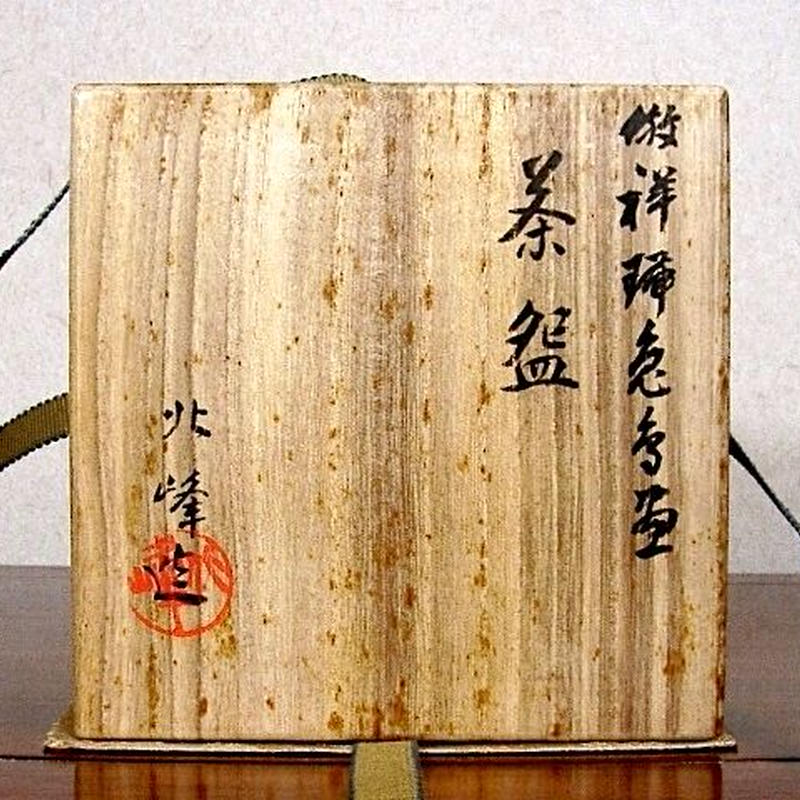 倣祥瑞兎鳥画
茶盌
北峰造